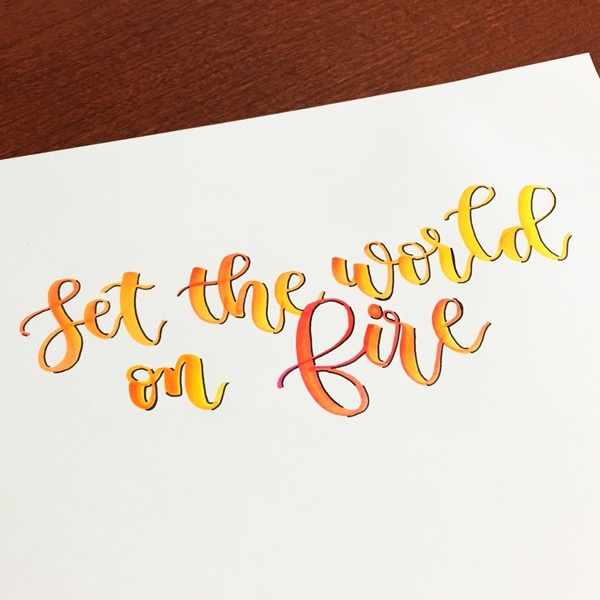 Set the world
on fire